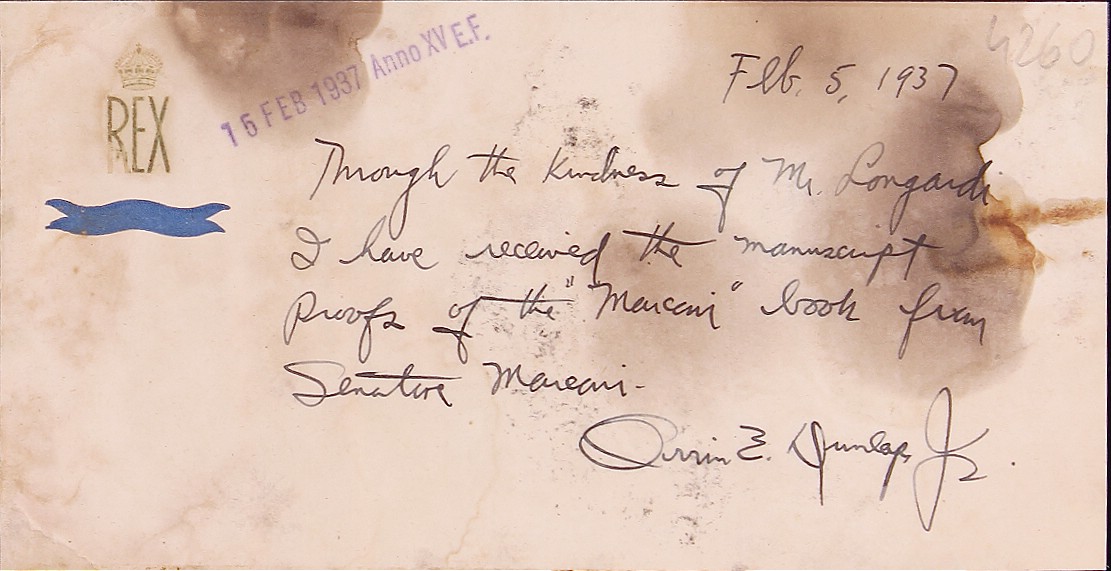 4260
Feb. 5, 1937
16 FEB 1937 Anno XV E.F.
REX
Through the kindness of Mr. Longardi
I have received the manuscript
proofs of the "Marconi" book from
Senatore Marconi.
Orrin E. Dunlap, Jr.